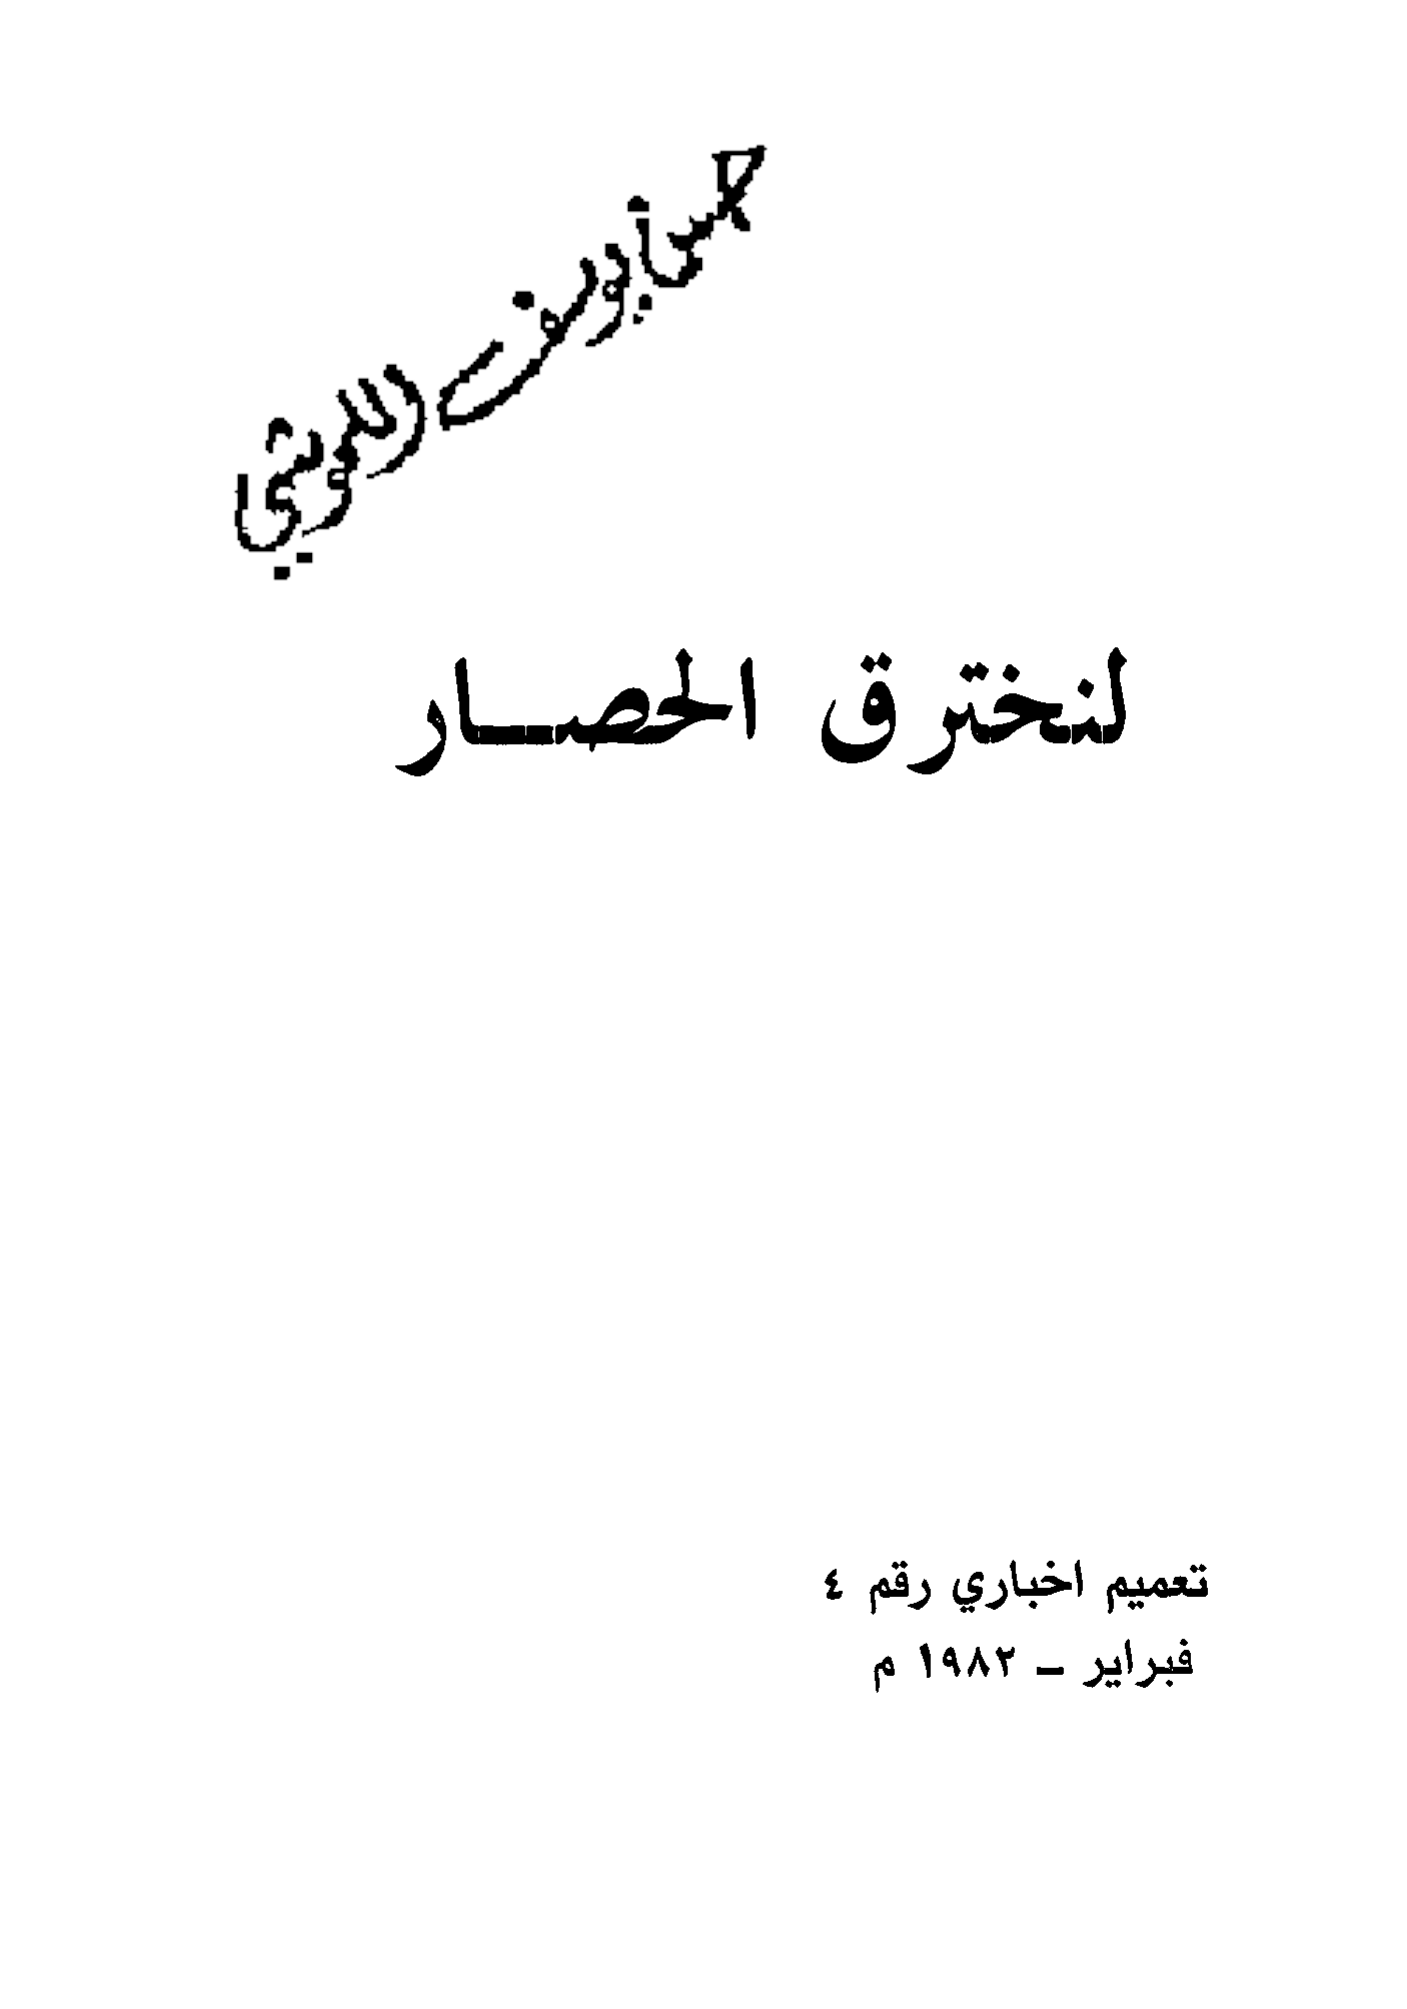 حسن يوسف اللويشي
لنختـرق الحصـــار
تعميم اخباري رقم ٤
فبراير ــ ١٩٨٢ م